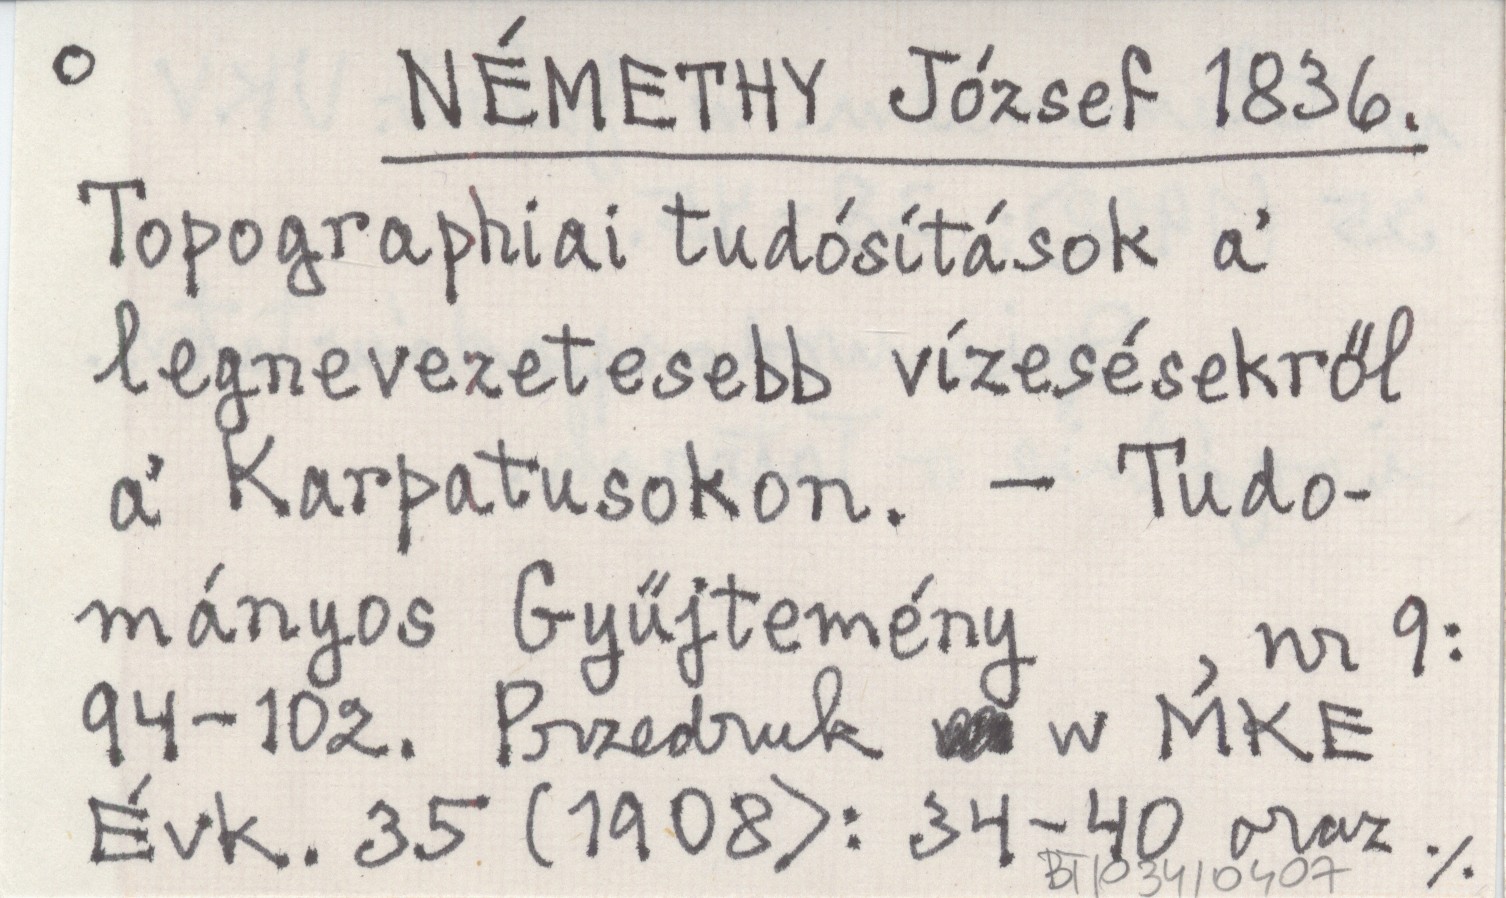 NÉMETHY József 1836.
Topographiai tudósítások a'
legnevezetesebb vízesésekről
a' Karpatusokon. – Tudo-
mányos Gyűjtemény , nr 9:
94–102. Przedruk w MKE
Évk. 35 (1908): 34–40 oraz ./.
BT/034/0407